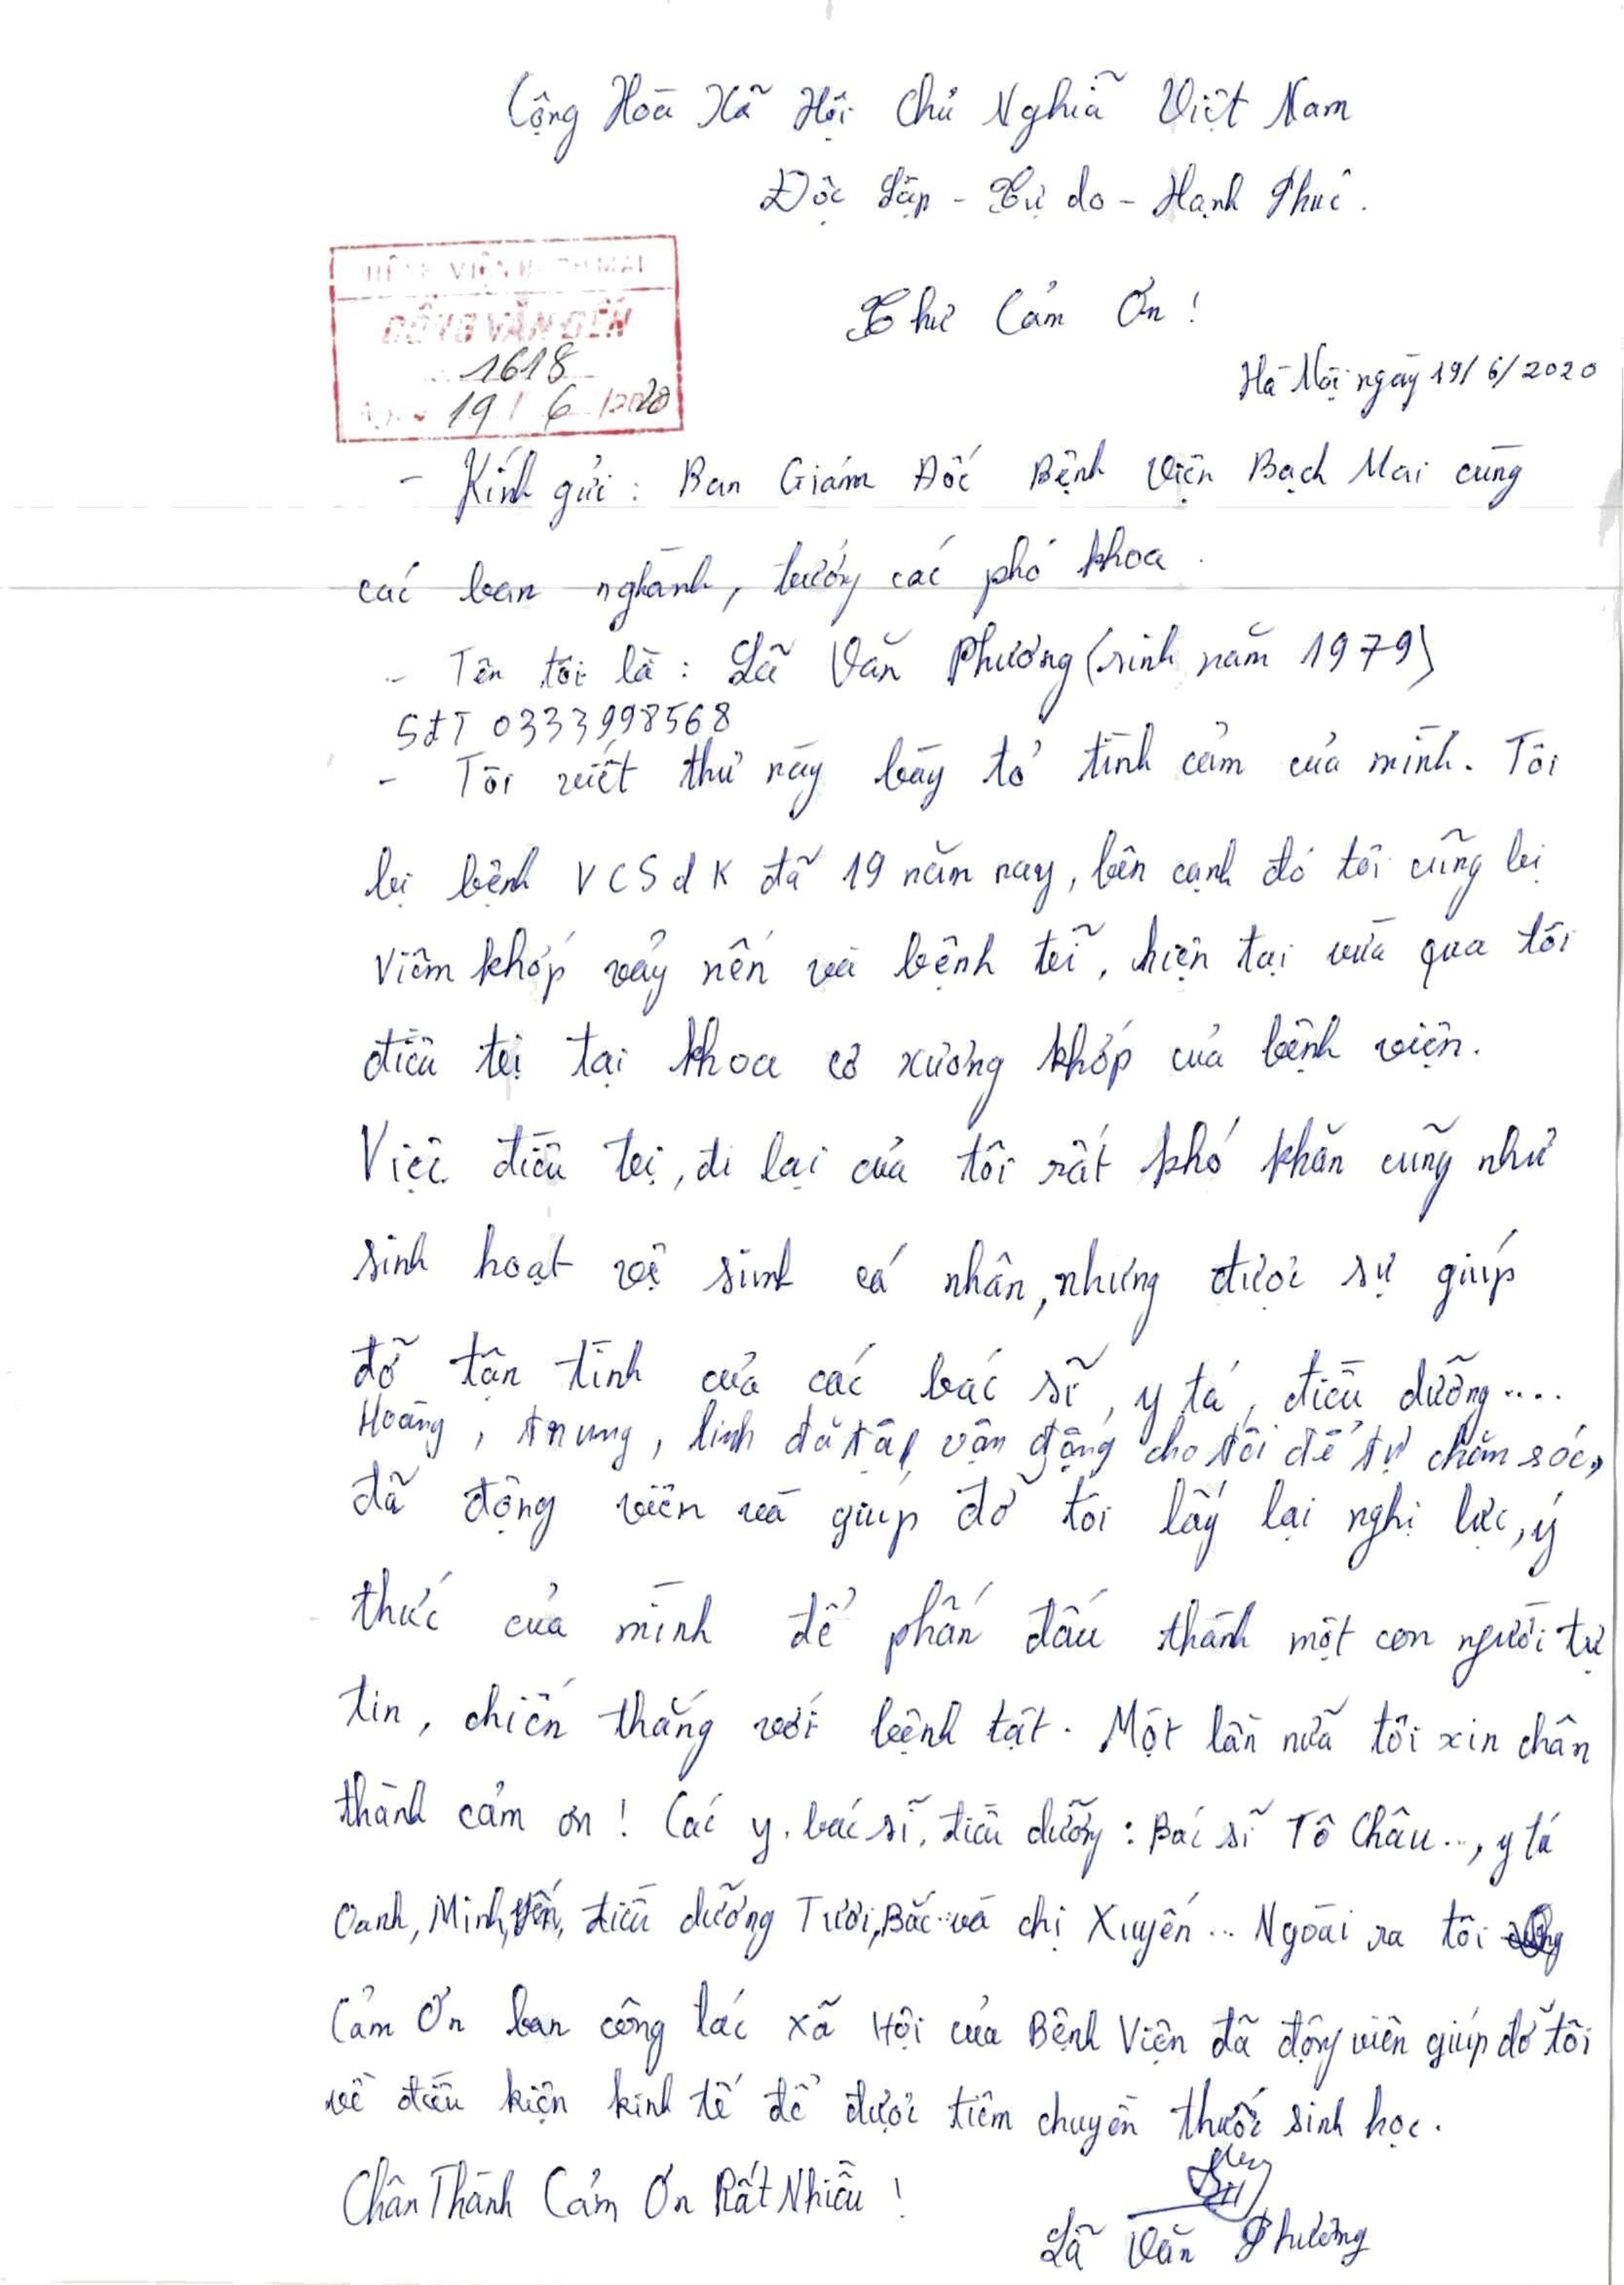 Cộng Hòa Xã Hội Chủ Nghĩã Việt Nam
Độc Lập - Tự do - Hạnh Phúc.
Thư Cảm Ơn !
BỆNH VIỆN BẠCH MAI
CÔNG VĂN ĐẾN
1618
19 / 6 /2020
Hà Nội ngày 19/6/2020
- Kính gửi : Ban Giám Đốc Bệnh Viện Bạch Mai cùng
các ban nghành, trưởng các phó khoa.
- Tên tôi là : Lã Văn Phương (sinh năm 1979)
SĐT 0333998568
- Tôi viết thư này bày tỏ tình cảm của mình. Tôi
bị bệnh VCSdK đã 19 năm nay, bên cạnh đó tôi cũng bị
viêm khớp vảy nến và bệnh trĩ, hiện tại vừa qua tôi
điều trị tại khoa cơ xương khớp của bệnh viện.
Việc điều trị, đi lại của tôi rất khó khăn cũng như
sinh hoạt vệ sinh cá nhân, nhưng được sự giúp
đỡ tận tình của các bác sĩ, y tá, điều dưỡng....
Hoàng, trung, linh đã tập vận động cho tôi để tự chăm sóc,
đã động viên và giúp đỡ tôi lấy lại nghị lực, ý
thức của mình để phấn đấu thành một con người tự
tin, chiến thắng với bệnh tật. Một lần nữa tôi xin chân
thành cảm ơn ! Các y. bác sĩ, điều dưỡng : Bác sĩ Tô Châu..., y tá
Oanh, Minh, Yến, điều dưỡng Tươi, Bắc.. và chị Xuyến ... Ngoài ra tôi
Cảm Ơn ban công tác xã Hội của Bệnh Viện đã động viên giúp đỡ tôi
về điều kiện kinh tế để được tiêm chuyền thuốc sinh học.
Chân Thành Cảm Ơn Rất Nhiều !
Lã Văn Phương